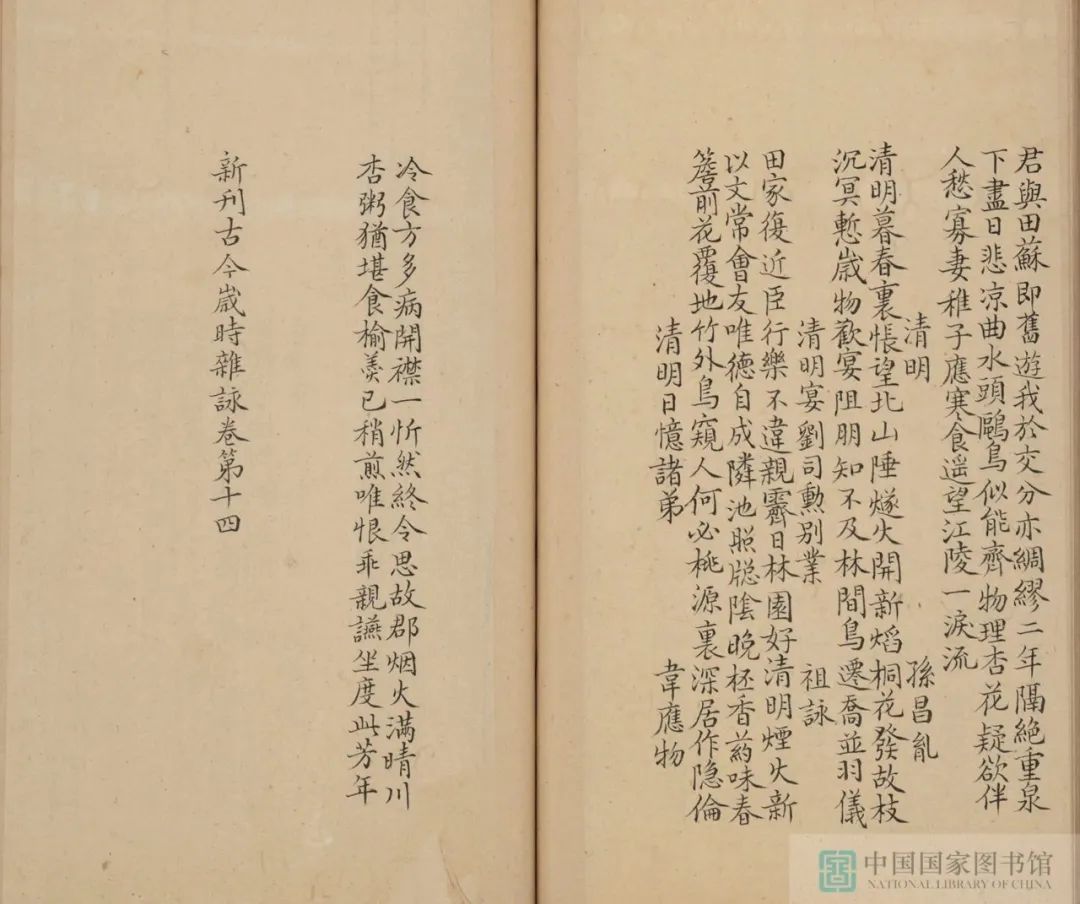 君與田蘇即舊遊我於交分亦綢繆二年隔絶重泉
下盡日悲凉曲水頭鷗鳥似能齊物理杏花疑欲伴
人愁寡妻稚子應寒食遥望江陵一淚流
清明 孫昌胤
清明暮春裏悵望北山陲燧火開新熖桐花發故枝
沉冥慙嵗物歡宴阻朋知不及林間鳥遷喬並羽儀
清明宴劉司勲别業 祖詠
田家復近臣行樂不違親霽日林園好清明煙火新
以文常會友唯德自成隣池照牎陰晚柸香葯味春
簷前花覆地竹外鳥窺人何必桃源裏深居作隐倫
清明日憶諸弟 韋應物
冷食方多病開襟一忻然終令思故郡烟火满晴川
杏粥猶堪食榆羮已稍煎唯恨乖親讌坐度此芳年
新刊古今嵗時雜詠卷第十四
中国国家图书馆
NATIONAL LIBRARY OF CHINA